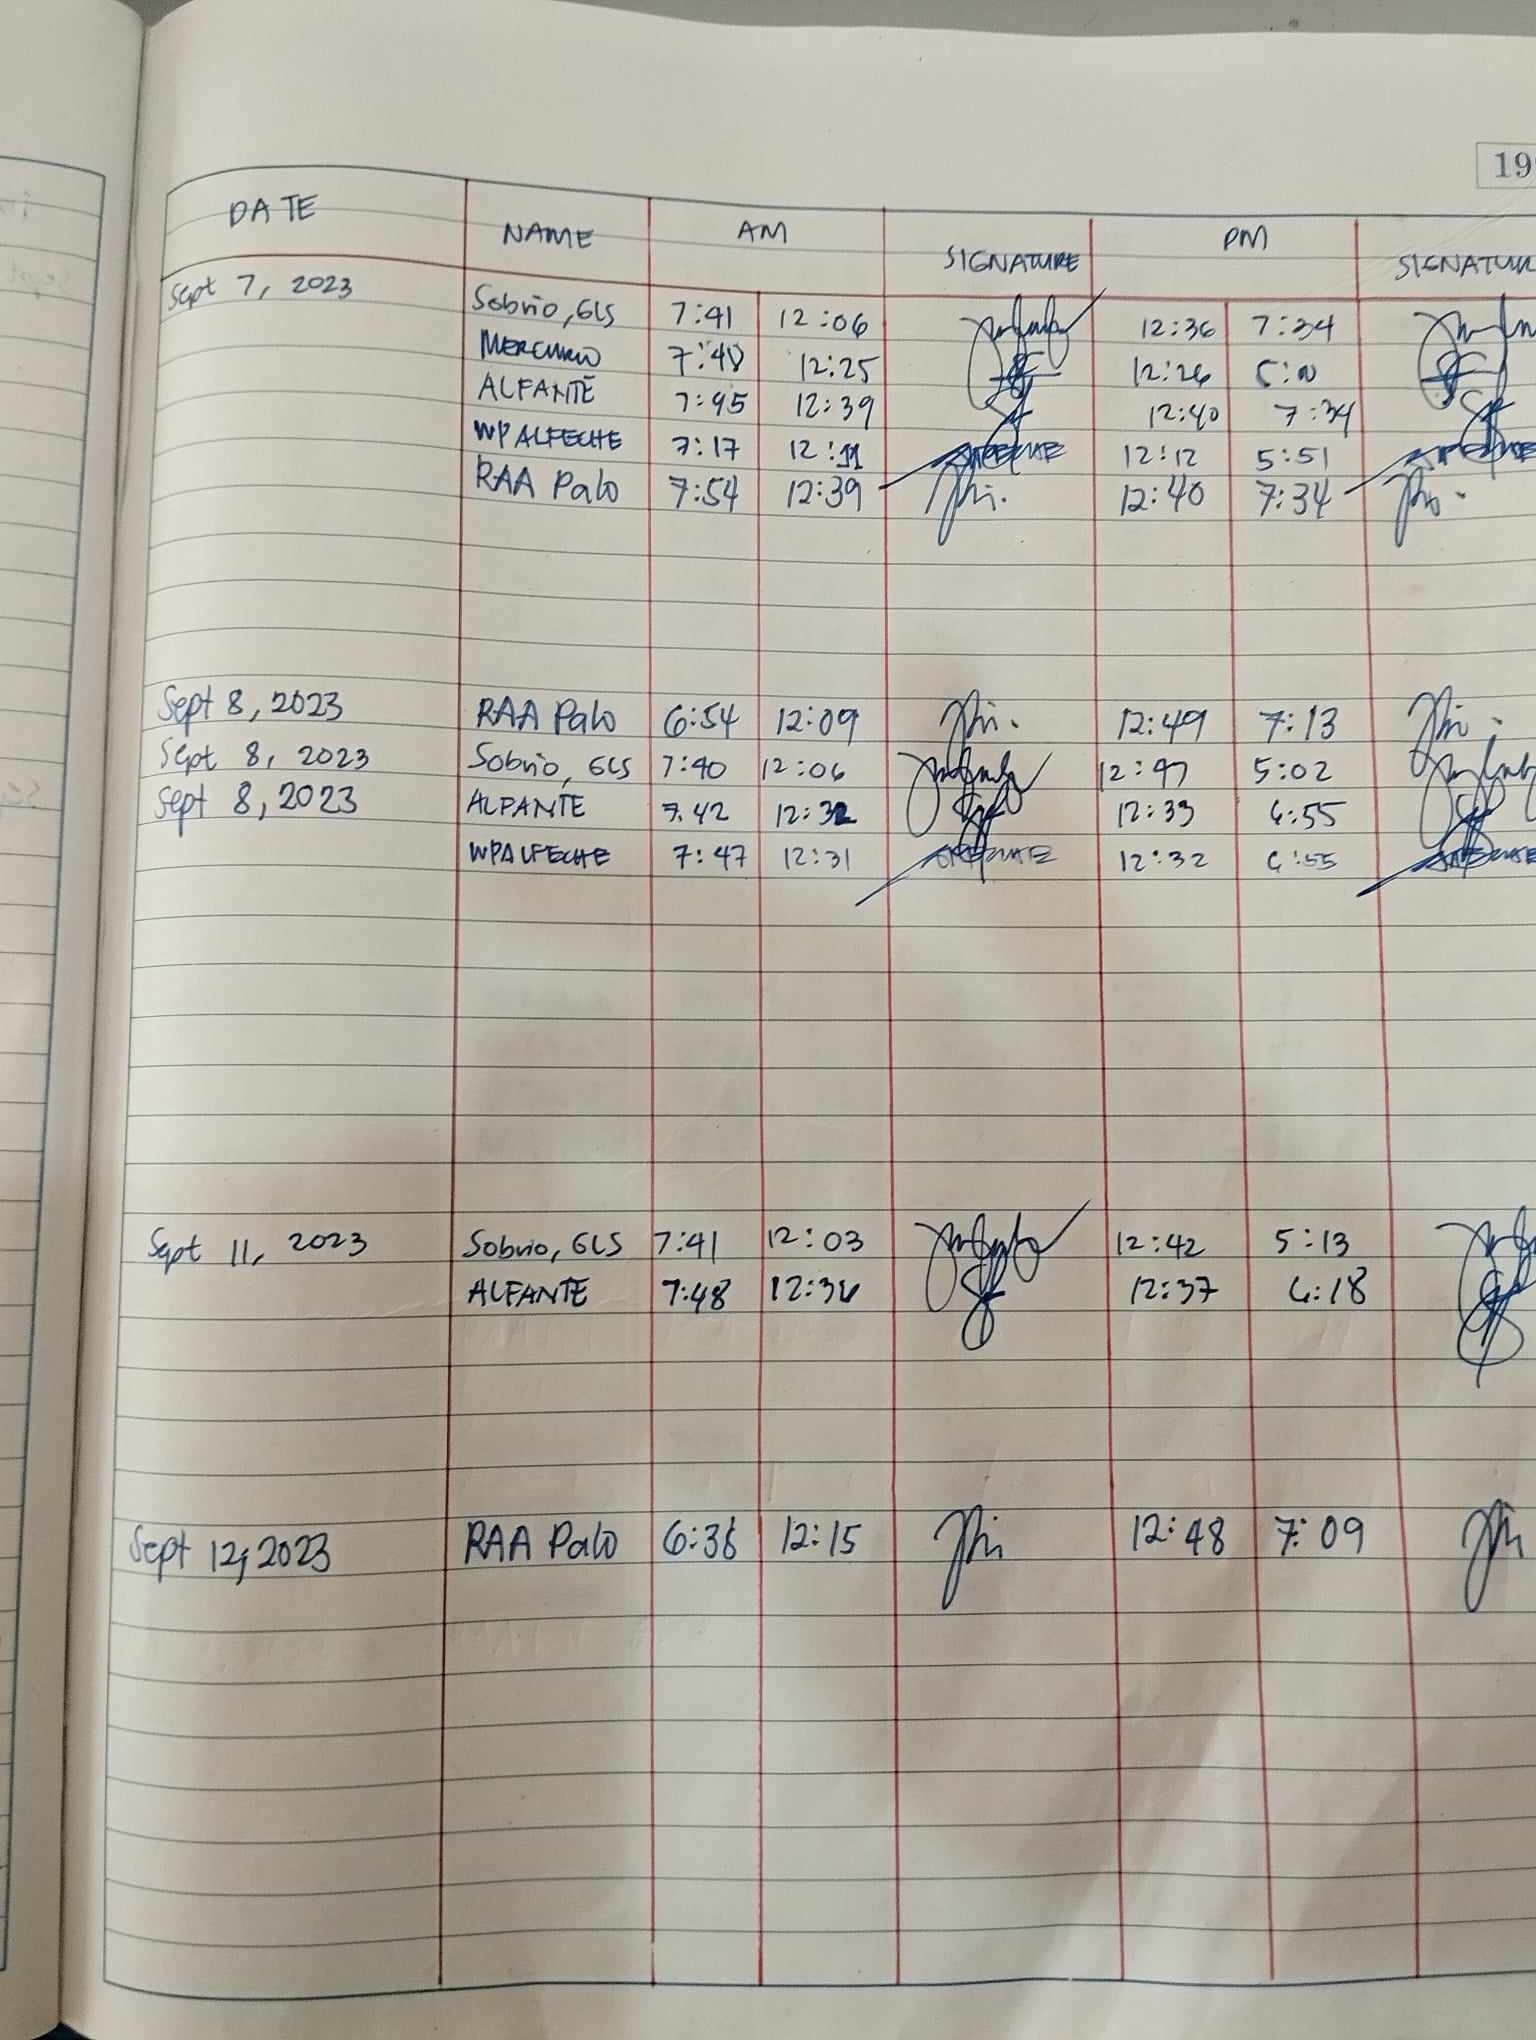 19
DATE NAME AM SIGNATURE PM SIGNATUR
Sept 7, 2023 Sobrio, GLS 7:41 12:06 12:36 7:34
MERCURIO 7:48 12:25 12:26 5:10
ALFANTE 7:45 12:39 12:40 7:34
WPALFECHE 7:17 12:11 12:12 5:51
RAA Palo 7:54 12:39 12:40 7:34
Sept 8, 2023 RAA Palo 6:54 12:09 12:49 7:13
Sept 8, 2023 Sobrio, GLS 7:40 12:06 12:47 5:02
Sept 8, 2023 ALFANTE 7:42 12:32 12:33 6:55
WPALFECHE 7:47 12:31 12:32 6:55
Sept 11, 2023 Sobrio, GLS 7:41 12:03 12:42 5:13
ALFANTE 7:48 12:36 12:37 6:18
Sept 12, 2023 RAA Palo 6:38 12:15 12:48 7:09